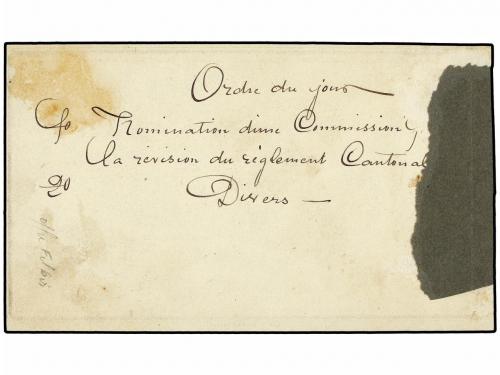 Ordre du jour
1o Nomination d'une Commission p
la révision du règlement Cantonal
2o Divers —